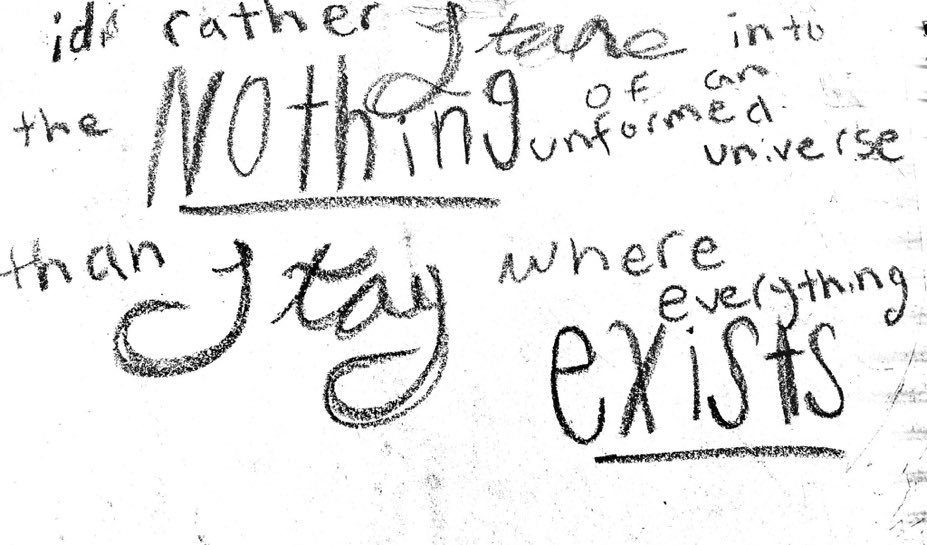 id rather Stare into
the NOthing of an
unformed
universe
than Stay where
everything
exists